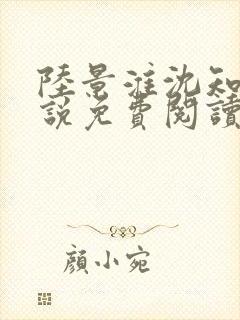 陸景淮沈知
說免費閱讀
顏小宛